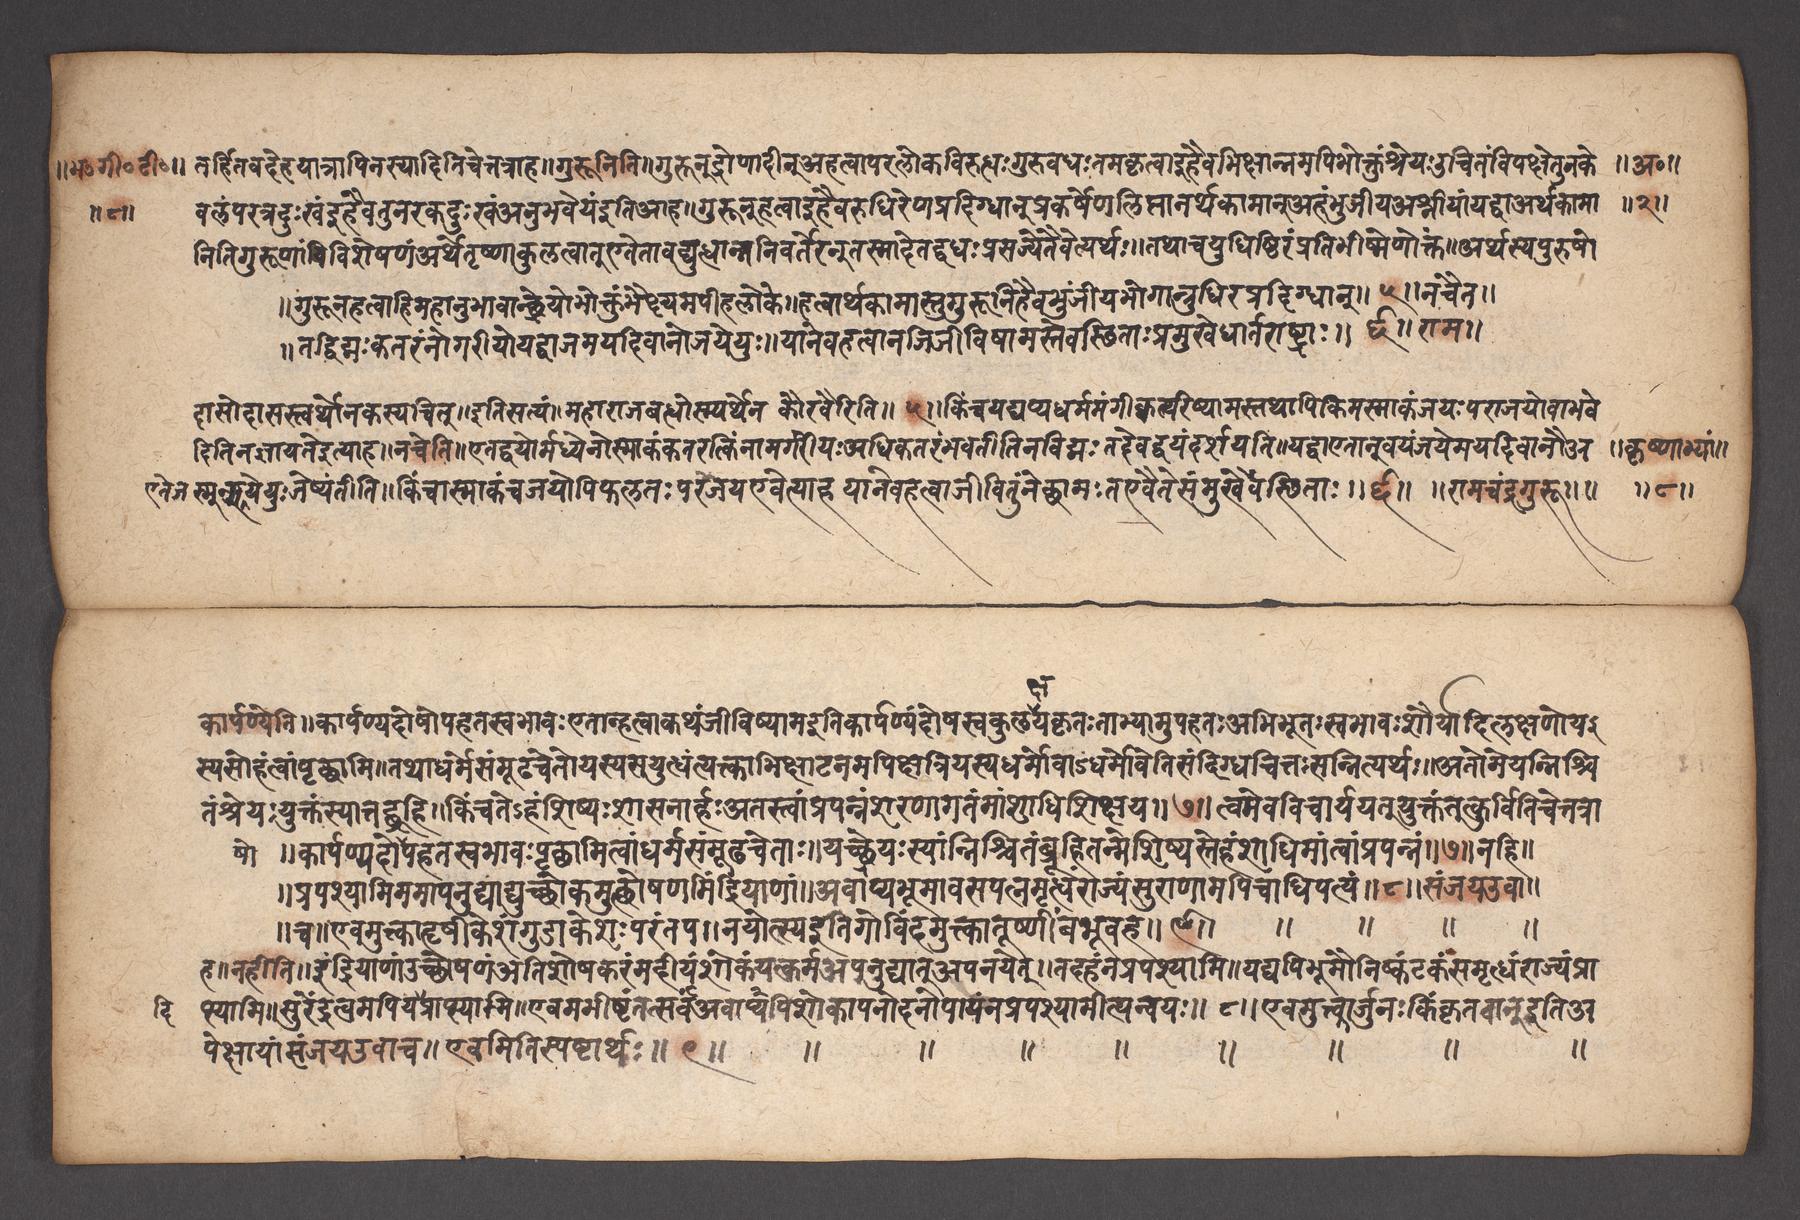 ॥भ॰गी॰टी॰॥ तर्हितवदेहयात्रापिनस्यादितिचेत्तत्राह॥गुरूनिति॥गुरून्द्रोणादीन्अहत्वापरलोकविरुद्धःगुरुवधःतमकृत्वाइहैवभिक्षान्नमपिभोक्तुंश्रेयःउचितंविपक्षेतुनके ॥अ॰॥
॥८॥ वलंपरत्रदुःखंइहैवतुनरकदुःखंअनुभवेयंइतिआह।गुरून्हत्वाइहैवरुधिरेणप्रदिग्धान्प्रकर्षेणलिप्तानर्थकामान्अहंभुंजीयअश्नीयांयद्वाअर्थकामा ॥२॥
नितिगुरूणांविशेषणंअर्थतृष्णाकुलत्वात्एतेतावद्युद्धान्ननिवर्तेरन्तस्मादेतद्वधःप्रसज्येतैवेत्यर्थः॥तथाचयुधिष्ठिरंप्रतिभीष्मेणोक्तं॥अर्थस्यपुरुषो
॥गुरूनहत्वाहिमहानुभावान्छ्रेयोभोक्तुंभैक्ष्यमपीहलोके॥हत्वार्थकामांस्तुगुरूनिहैवभुंजीयभोगान्रुधिरप्रदिग्धान्॥५॥नचैत॥
॥तद्विद्मःकतरंनोगरीयोयद्वाजयेमयदिवानोजयेयुः॥यानेवहत्वानजिजीविषामस्तेवस्थिताःप्रमुखेधार्तराष्ट्राः॥६॥राम॥
दासोदासस्त्वर्थोनकस्यचित्॥इतिसत्यं॥महाराजबद्धोस्म्यर्थेन कौरवैरिति॥५॥किंचयद्यप्यधर्ममंगीकरिष्यामस्तथापिकिमस्माकंजयःपराजयोवाभवे
दितिनज्ञायतेइत्याह॥नचेति॥एतद्वयोर्मध्येनोस्माकंकतरत्किंनामगरीयःअधिकतरंभवतीतिनविद्मःतदेवद्वयंदर्शयति॥यद्वाएतान्वयंजयेमयदिवानौअ ॥कृष्णाभ्यां॥
एतेज स्मान्जयेयुःजेष्यंतीति॥किंचास्माकंचजयोपिफलतःपराजयएवेत्याह यानेवहत्वाजीवितुंनेच्छामःतएवैतेसंमुखेवस्थिताः॥६॥ ॥रामचंद्रगुरू॥॥ ॥८॥
क्ष
कार्पण्येति॥कार्पण्यदोषोपहतस्वभावःएतान्हत्वाकथंजीविष्यामइतिकार्पण्यंदोषस्वकुलयकृतःताभ्यामुपहतःअभिभूतःस्वभावःशौर्यादिलक्षणोय
स्यसोहंत्वांपृच्छामि॥तथाधर्मसंमूढचेतोयस्यसयुद्धंत्यक्त्वाभिक्षाटनमपिक्षत्रियस्यधर्मोवाऽधर्मोवेतिसंदिग्धचित्तःसन्नित्यर्थः॥अतोमेयन्निश्चि
तंश्रेयःयुक्तंस्यात्तद्ब्रूहि॥किंचतेऽहंशिष्यःशासनार्हःअतस्त्वांप्रपन्नंशरणागतंमांशाधिशिक्षय॥७॥त्वमेवविचार्ययत्युक्तंतत्कुर्वितिचेत्तत्रा
षो ॥कार्पण्यदोपहतस्वभावःपृच्छामित्वांधर्मसंमूढचेताः॥यच्छ्रेयःस्यान्निश्चितंब्रूहितन्मेशिष्यस्तेहंशाधिमांत्वांप्रपन्नं॥७॥नहि॥
॥प्रपश्यामिममापनुद्याद्यच्छोकमुच्छोषणमिंद्रियाणां॥अवाप्यभूमावसपत्नमृद्धंराज्यंसुराणामपिचाधिपत्यं॥८॥संजयउवा॥
॥च॥एवमुक्त्वाहृषीकेशंगुडाकेशःपरंतप॥नयोत्स्यइतिगोविंदमुक्त्वातूष्णींबभूवह॥९॥ ॥ ॥ ॥ ॥
ह॥नहीति॥इंद्रियाणांउच्छोषणंअतिशोषकरंमदीयंशोकंयत्कर्मअपनुद्यात्अपनयेत्॥तदहंनप्रपश्यामि॥यद्यपिभूमौनिष्कंटकंसमृद्धंराज्यंप्रा
दि प्स्यामि॥सुरेंद्रत्वमपियप्राप्स्यामि॥एवमभीष्टंतत्सर्वंअवाप्यपिशोकापनोदनोपायंनप्रपश्यामीत्यन्वयः॥८॥एवमुक्त्वार्जुनःकिंकृतवान्इतिअ
पेक्षायांसंजयउवाच॥एवमितिस्पष्टार्थः॥९॥ ॥ ॥ ॥ ॥ ॥ ॥ ॥ ॥